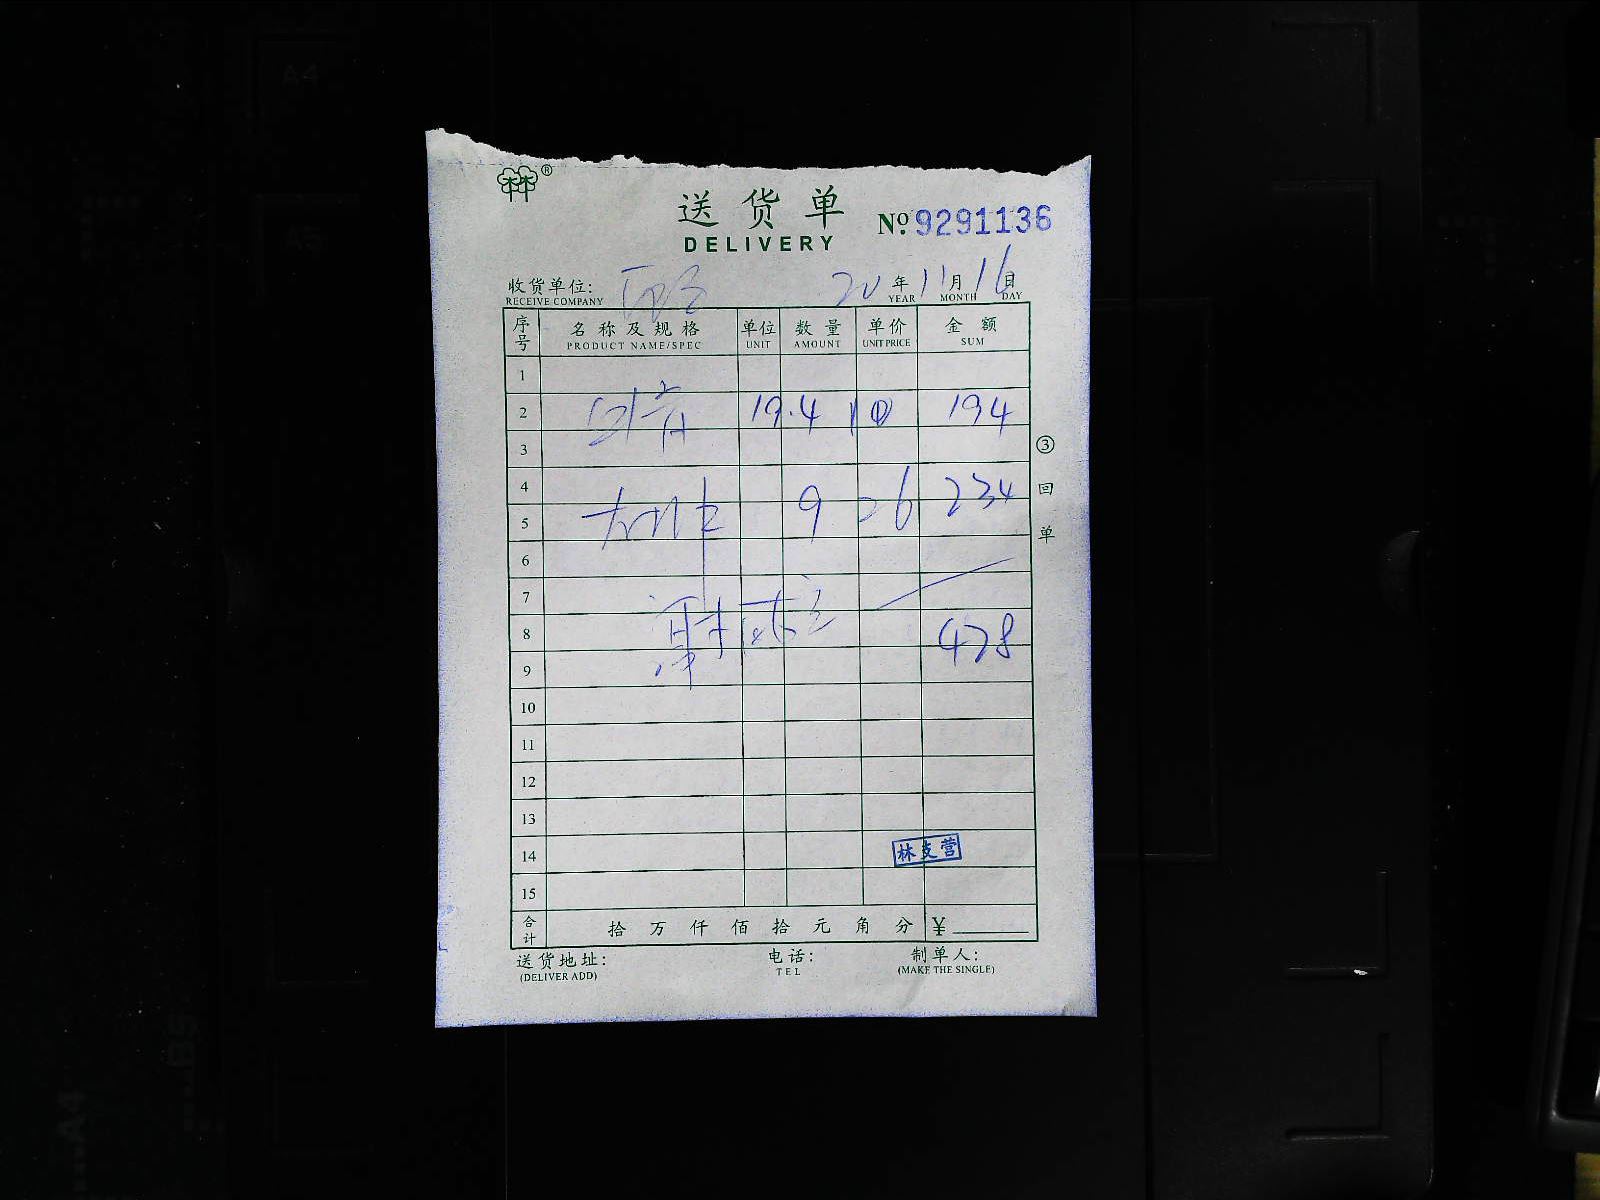 林®
送货单
DELIVERY
No.9291136
收货单位: 20年11月16日
RECEIVE COMPANY YEAR MONTH DAY
序号 名称及规格 单位 数量 单价 金额
PRODUCT NAME/SPEC UNIT AMOUNT UNIT PRICE SUM
1
2 19.4 10 194
3
4
5 9 26 234
6
7
8 478
9
10
11
12
13
14
15
林支营
合计 拾 万 仟 佰 拾 元 角 分 ¥
送货地址: 电话: 制单人:
(DELIVER ADD) TEL (MAKE THE SINGLE)
③回单
A4
A5
A4
B5